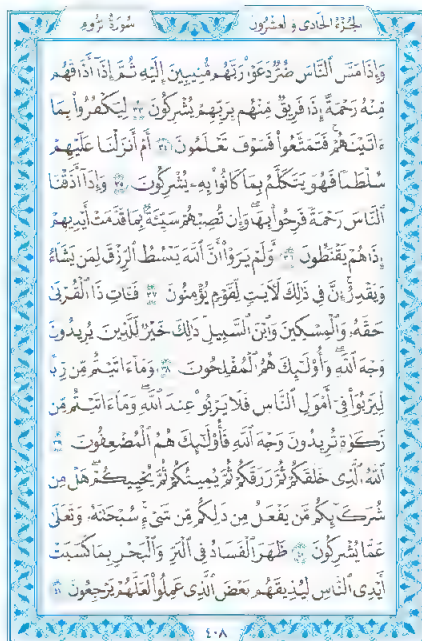 الجزء الحادى والعشرون سورة الروم
وَإِذَا مَسَّ ٱلنَّاسَ ضُرٌّ دَعَوْا۟ رَبَّهُم مُّنِيبِينَ إِلَيْهِ ثُمَّ إِذَآ أَذَاقَهُم
مِّنْهُ رَحْمَةً إِذَا فَرِيقٌ مِّنْهُم بِرَبِّهِمْ يُشْرِكُونَ ٣٣ لِيَكْفُرُوا۟ بِمَآ
ءَاتَيْنَٰهُمْ ۚ فَتَمَتَّعُوا۟ فَسَوْفَ تَعْلَمُونَ ٣٤ أَمْ أَنزَلْنَا عَلَيْهِمْ
سُلْطَٰنًا فَهُوَ يَتَكَلَّمُ بِمَا كَانُوا۟ بِهِۦ يُشْرِكُونَ ٣٥ وَإِذَآ أَذَقْنَا
ٱلنَّاسَ رَحْمَةً فَرِحُوا۟ بِهَا ۖ وَإِن تُصِبْهُمْ سَيِّئَةٌۢ بِمَا قَدَّمَتْ أَيْدِيهِمْ
إِذَا هُمْ يَقْنَطُونَ ٣٦ أَوَلَمْ يَرَوْا۟ أَنَّ ٱللَّهَ يَبْسُطُ ٱلرِّزْقَ لِمَن يَشَآءُ
وَيَقْدِرُ ۚ إِنَّ فِى ذَٰلِكَ لَءَايَٰتٍ لِّقَوْمٍ يُؤْمِنُونَ ٣٧ فَـَٔاتِ ذَا ٱلْقُرْبَىٰ
حَقَّهُۥ وَٱلْمِسْكِينَ وَٱبْنَ ٱلسَّبِيلِ ۚ ذَٰلِكَ خَيْرٌ لِّلَّذِينَ يُرِيدُونَ
وَجْهَ ٱللَّهِ ۖ وَأُو۟لَٰٓئِكَ هُمُ ٱلْمُفْلِحُونَ ٣٨ وَمَآ ءَاتَيْتُم مِّن رِّبًا
لِّيَرْبُوَا۟ فِىٓ أَمْوَٰلِ ٱلنَّاسِ فَلَا يَرْبُوا۟ عِندَ ٱللَّهِ ۖ وَمَآ ءَاتَيْتُم مِّن
زَكَوٰةٍ تُرِيدُونَ وَجْهَ ٱللَّهِ فَأُو۟لَٰٓئِكَ هُمُ ٱلْمُضْعِفُونَ ٣٩
ٱللَّهُ ٱلَّذِى خَلَقَكُمْ ثُمَّ رَزَقَكُمْ ثُمَّ يُمِيتُكُمْ ثُمَّ يُحْيِيكُمْ ۖ هَلْ مِن
شُرَكَآئِكُم مَّن يَفْعَلُ مِن ذَٰلِكُم مِّن شَىْءٍ ۚ سُبْحَٰنَهُۥ وَتَعَٰلَىٰ
عَمَّا يُشْرِكُونَ ٤٠ ظَهَرَ ٱلْفَسَادُ فِى ٱلْبَرِّ وَٱلْبَحْرِ بِمَا كَسَبَتْ
أَيْدِى ٱلنَّاسِ لِيُذِيقَهُم بَعْضَ ٱلَّذِى عَمِلُوا۟ لَعَلَّهُمْ يَرْجِعُونَ ٤١
٤٠٨